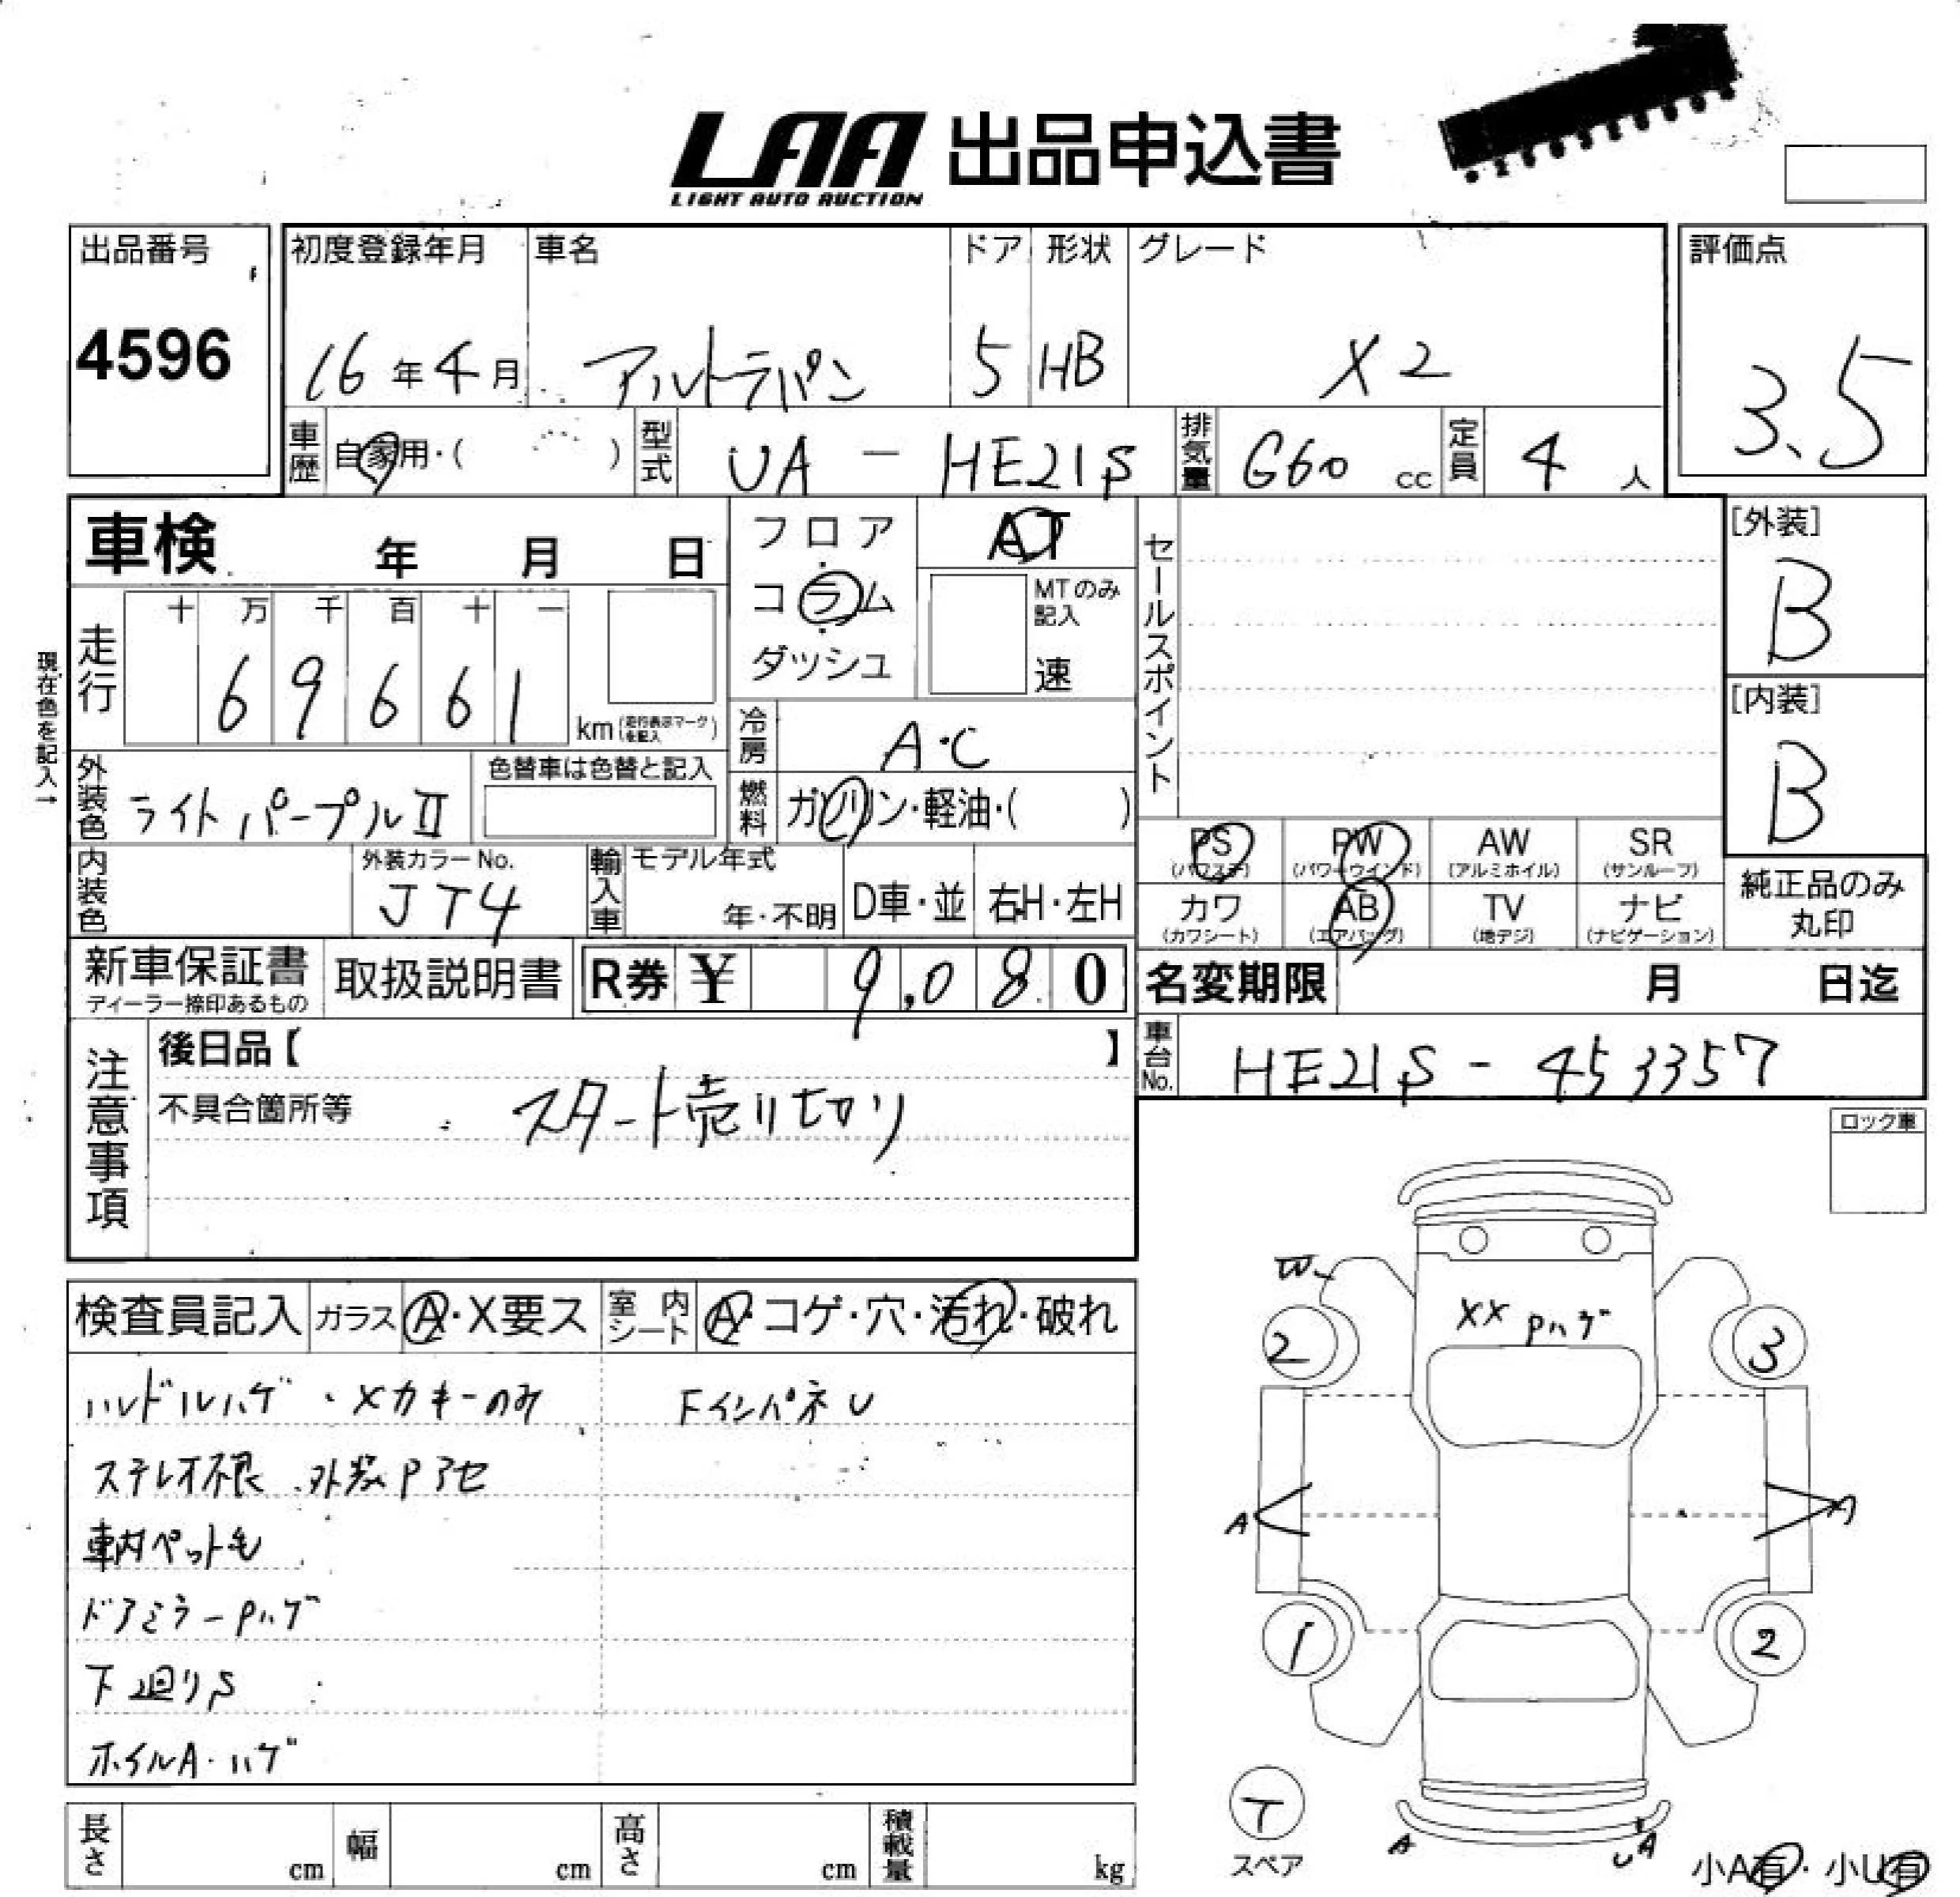 LAA 出品申込書
LIGHT AUTO AUCTION
出品番号 初度登録年月 車名 ドア 形状 グレード 評価点
4596 16年4月 アルトラパン 5 HB X2 3.5
車歴 自家用・( ) 型式 UA - HE21S 排気量 660 cc 定員 4 人
車検 年 月 日
フロア
コラム
ダッシュ
AT
MTのみ記入
速
セールスポイント
[外装]
B
[内装]
B
現在色を記入→
走行 十 万 千 百 十 一
69661 km (走行表示マークを記入)
冷房 A・C
外装色 ライトパープルⅡ 色替車は色替と記入
燃料 ガソリン・軽油・( )
PS (パワステ) PW (パワーウインド) AW (アルミホイル) SR (サンルーフ)
カワ (カワシート) AB (エアバッグ) TV (地デジ) ナビ (ナビゲーション)
純正品のみ
丸印
内装色 外装カラーNo. JT4 輸入車 モデル年式 年・不明 D車・並 右H・左H
新車保証書 ディーラー捺印あるもの 取扱説明書 R券 ¥ 9,080
名変期限 月 日迄
車台No. HE21S - 453357
注意事項
後日品【 】
不具合箇所等 スタート売り切り
ロック車
検査員記入 ガラス A・X要ス 室内シート A・コゲ・穴・汚れ・破れ
ハンドルハゲ・メカキーのみ FインパネU
ステレオ不良 外装Pアセ
車内ペット毛
ドアミラーPハゲ
下廻りS
ホイルA・ハゲ
W
XX Pハゲ
2 3
A A
1 2
T
スペア
A UA
小A有・小U有
長さ cm 幅 cm 高さ cm 積載量 kg